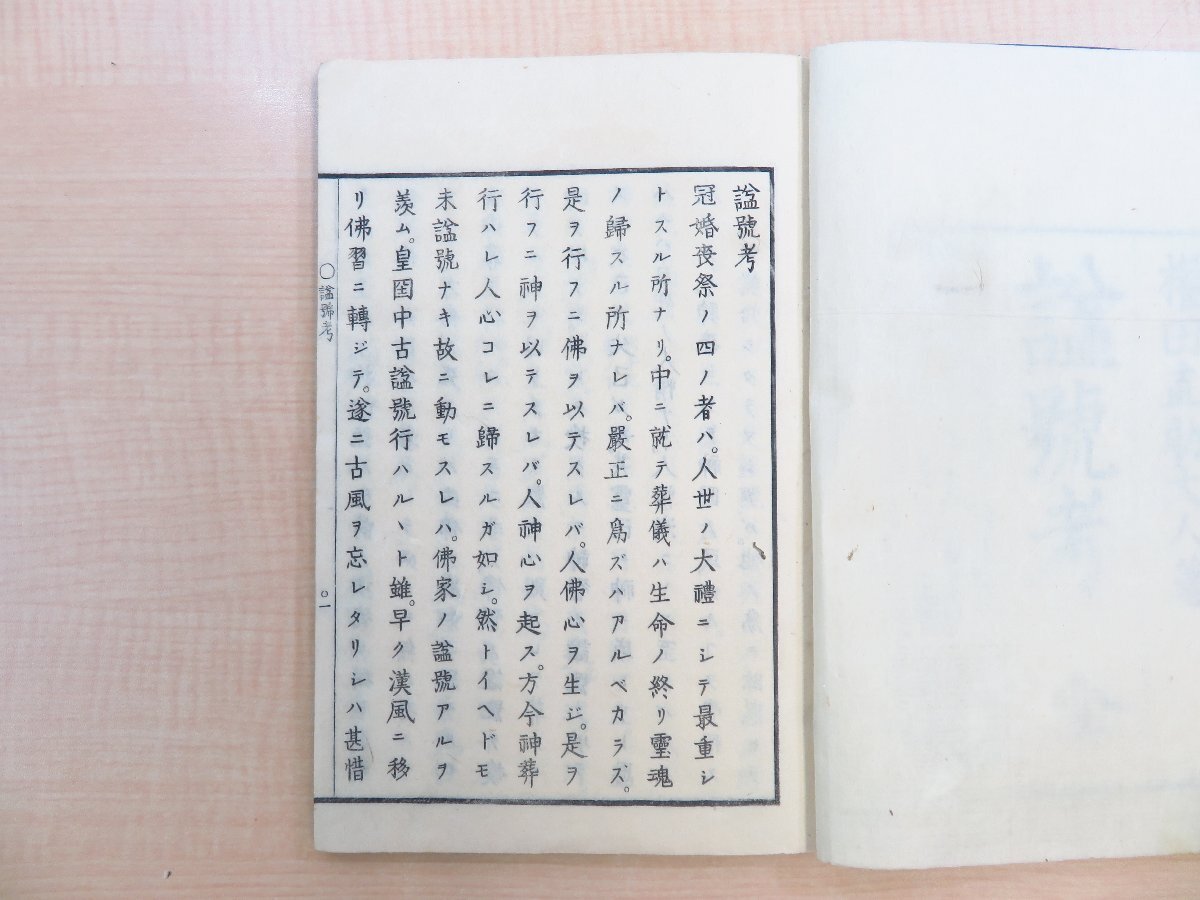 諡號考
冠婚喪祭ノ四ノ者ハ。人世ノ大禮ニシテ最重シ
トスル所ナリ。中ニ就テ葬儀ハ生命ノ終リ靈魂
ノ歸スル所ナレバ。嚴正ニ爲ズハアルベカラズ。
是ヲ行フニ佛ヲ以テスレバ。人佛心ヲ生ジ。是ヲ
行フニ神ヲ以テスレバ。人神心ヲ起ス。方今神葬
行ハレ人心コレニ歸スルガ如シ。然トイヘドモ
未諡號ナキ故ニ動モスレハ。佛家ノ諡號アルヲ
羨ム。皇国中古諡號行ハルヽト雖。早ク漢風ニ移
リ佛習ニ轉ジテ。遂ニ古風ヲ忘レタリシハ甚惜
〇諡號考
〇一